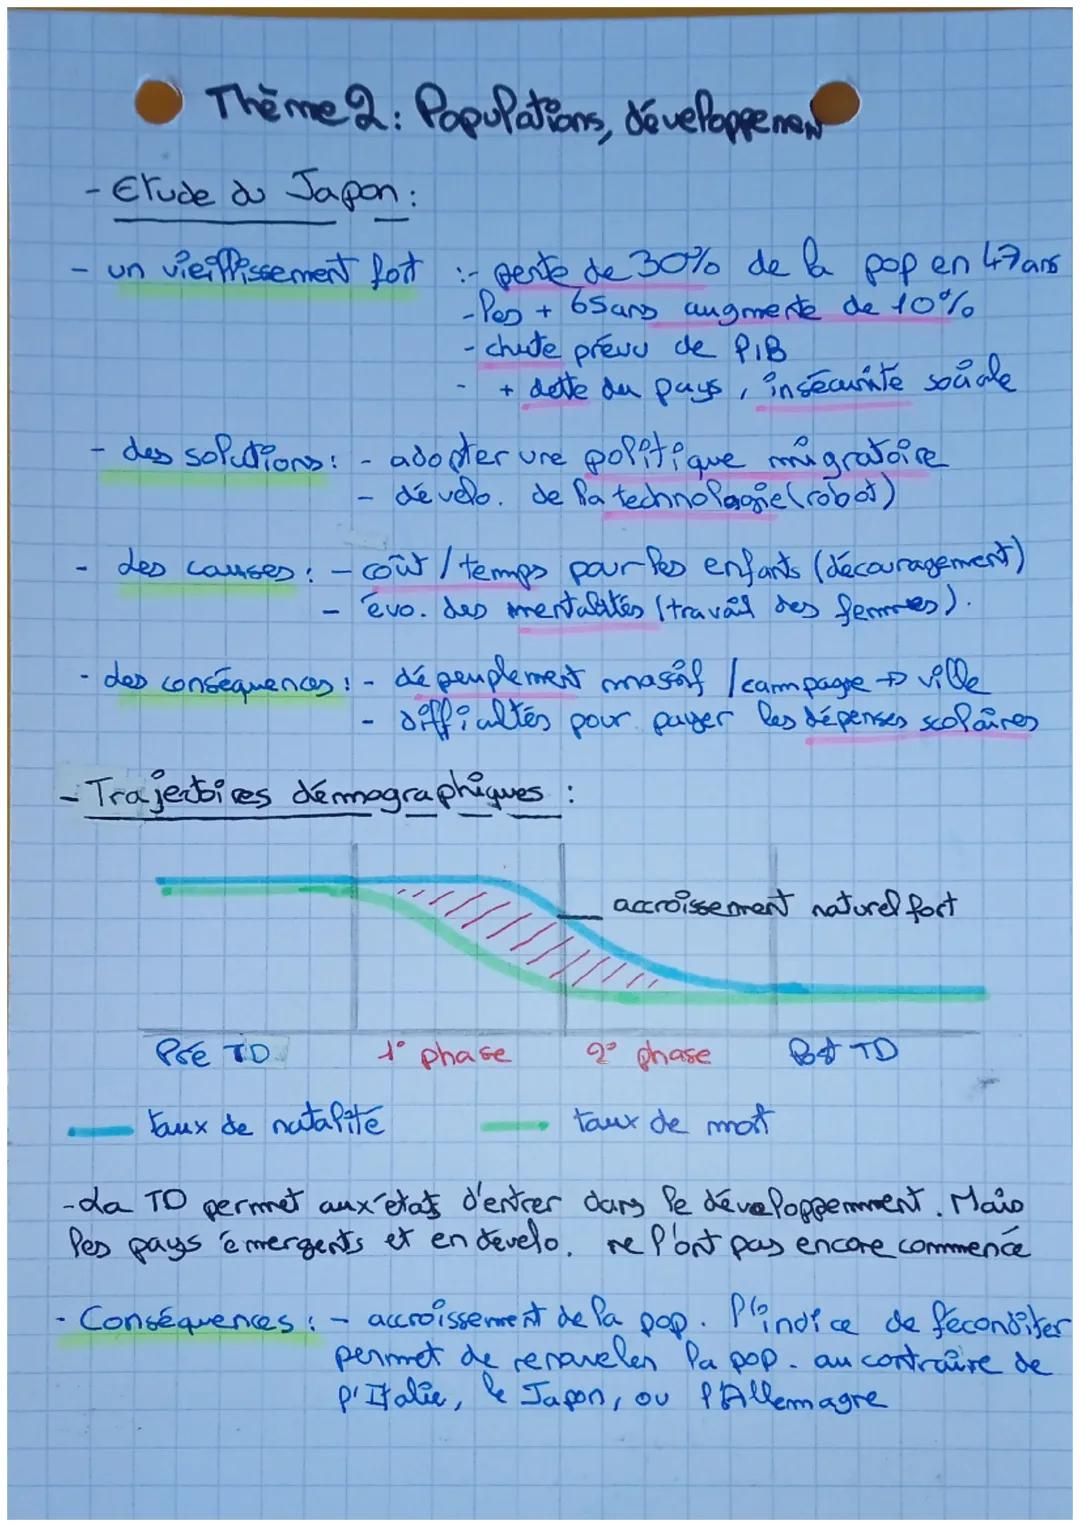 Thème 2: Populations, développemen
- Etude du Japon :
- un vieillissement fort :- perte de 30% de la pop en 47 ans
- les + 65 ans augmente de 10%
- chute prévu de PIB
- + dette du pays, insécurité sociale
- des solutions : - adopter une politique migratoire
- dévelo. de la technologie (robot)
- des causes : - coût / temps pour les enfants (découragement)
- évo. des mentalités (travail des femmes).
- des conséquences : - dépeuplement massif / campagne → ville
- difficultés pour payer les dépenses scolaires
- Trajectoires démographiques :
accroissement naturel fort
Pré TD 1° phase 2° phase Post TD
taux de natalité taux de mort
- La TD permet aux états d'entrer dans le développemment. Mais
les pays émergents et en dévelo. ne l'ont pas encore commencé
- Conséquences : - accroissement de la pop. l'indice de féconditer
permet de renouveler la pop. au contraire de
l'Italie, le Japon, ou l'Allemagne